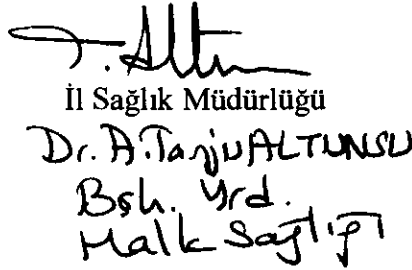 T. Altun
İl Sağlık Müdürlüğü
Dr. A. Tanju ALTUNSU
Bşh. Yrd.
Halk Sağlığı